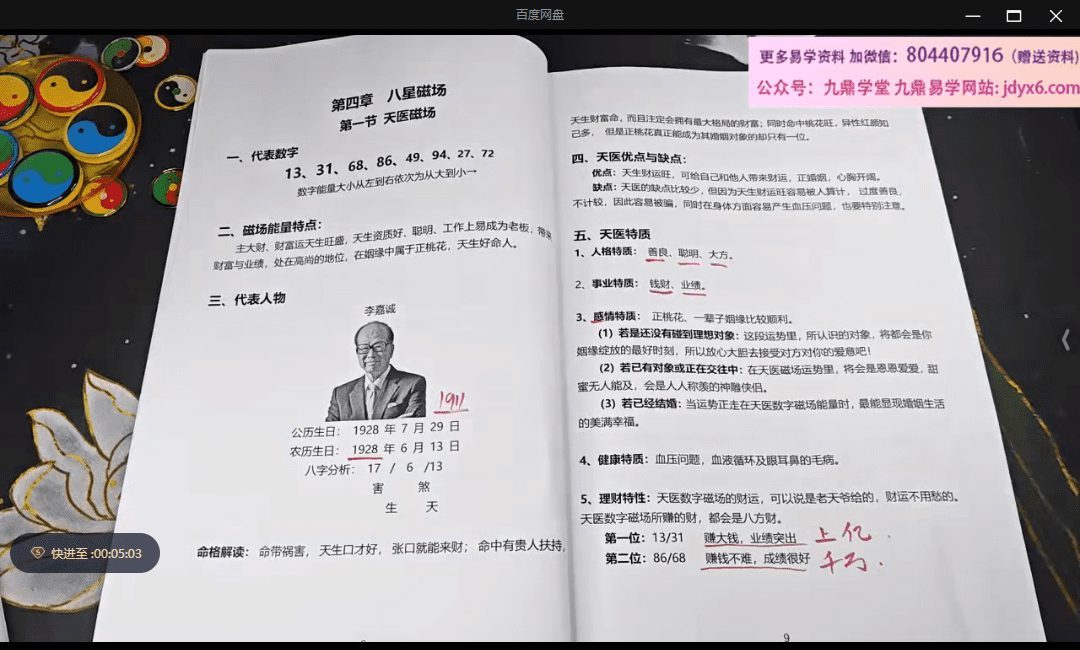 百度网盘
更多易学资料 加微信：804407916（赠送资料）
公众号：九鼎学堂 九鼎易学网站: jdyx6.com
第四章 八星磁场
第一节 天医磁场
一、代表数字
13、31、68、86、49、94、27、72
数字能量大小从左到右依次为从大到小→
二、磁场能量特点：
主大财、财富运天生旺盛，天生资质好、聪明、工作上易成为老板，带来
财富与业绩，处在高尚的地位，在姻缘中属于正桃花，天生好命人。
三、代表人物
李嘉诚
1911
公历生日： 1928 年 7 月 29 日
农历生日： 1928 年 6 月 13 日
八字分析： 17 / 6 /13
害 煞
生 天
命格解读： 命带祸害， 天生口才好， 张口就能来财； 命中有贵人扶持，
天生财富命，而且注定会拥有最大格局的财富；同时命中桃花旺，异性红颜知
己多， 但是正桃花真正能成为其婚姻对象的却只有一位。
四、天医优点与缺点：
优点：天生财运旺，可给自己和他人带来财运，正婚姻，心胸开阔。
缺点：天医的缺点比较少，但因为天生财运旺容易被人算计， 过度善良，
不计较，因此容易被骗，同时在身体方面容易产生血压问题，也要特别注意。
五、天医特质
1、人格特质： 善良、聪明、大方。
2、事业特质： 钱财、业绩。
3、感情特质： 正桃花、一辈子姻缘比较顺利。
（1）若是还没有碰到理想对象：这段运势里，所认识的对象，将都会是你
姻缘绽放的最好时刻，所以放心大胆去接受对方对你的爱意吧！
（2）若已有对象或正在交往中：在天医磁场运势里，将会是恩恩爱爱，甜
蜜无人能及，会是人人称羡的神雕侠侣。
（3）若已经结婚：当运势正走在天医数字磁场能量时，最能显现婚姻生活
的美满幸福。
4、健康特质：血压问题，血液循环及眼耳鼻的毛病。
5、理财特性：天医数字磁场的财运，可以说是老天爷给的，财运不用愁的。
天医数字磁场所赚的财，都会是八方财。
第一位：13/31 赚大钱，业绩突出 上亿.
第二位：86/68 赚钱不难，成绩很好 千万.
9
快进至 :00:05:03